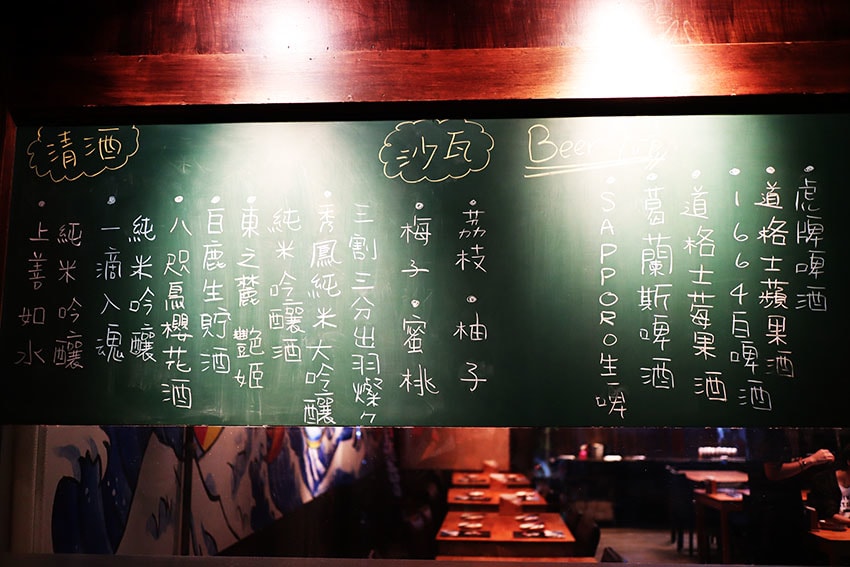 清酒
・上善如水
純米吟釀
・一滴入魂
純米吟釀
・八咫烏櫻花酒
・百鹿生貯酒
・東之麓 艷姬
純米吟釀酒
・秀鳳純米大吟釀
三割三分出羽燦々
沙瓦
・梅子・蜜桃
・荔枝・柚子
Beer
・SAPPORO生啤
・葛蘭斯啤酒
・道格士莓果酒
・1664白啤酒
・道格士蘋果酒
・虎牌啤酒